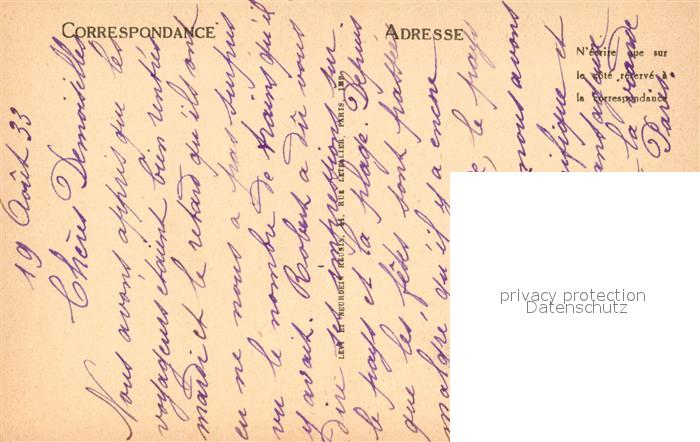 CORRESPONDANCE
ADRESSE
N'écrire que sur
le côté réservé à
la correspondance
LEVY ET NEURDEIN RÉUNIS, 44, RUE LETELLIER, PARIS, IMP.
19 Août 33
Chères Demoiselles
Nous avons appris que les
voyageurs étaient bien rentrés
mardi et le retard qu'ils ont
eu ne nous a pas surpris
vu le nombre de trains qu'il
y avait. Robert a dû vous
dire ses impressions sur
le pays et la plage. Depuis
que les fêtes sont passées
malgré qu'il y a encore
le pays
nous avons
et
la grande
Paris
privacy protection
Datenschutz